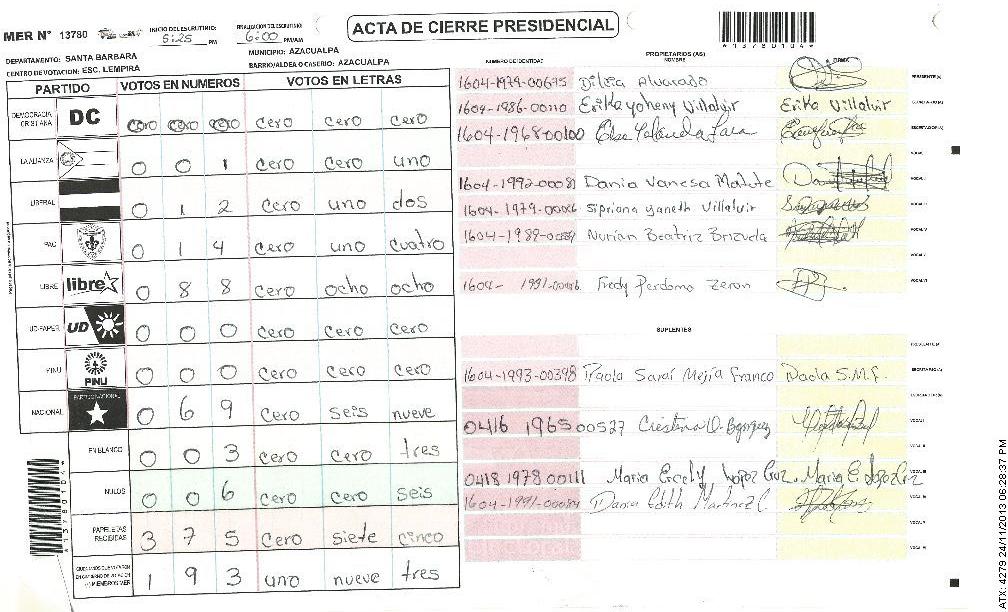 ACTA DE CIERRE PRESIDENCIAL
MER N° 13780
INICIO DEL ESCRUTINIO: 5:25 PM
FINALIZACION DEL ESCRUTINIO: 6:00 PM/AM
*13780104*
DEPARTAMENTO: SANTA BARBARA
MUNICIPIO: AZACUALPA
CENTRO DE VOTACION: ESC. LEMPIRA
BARRIO/ALDEA O CASERIO: AZACUALPA
PARTIDO VOTOS EN NUMEROS VOTOS EN LETRAS
DEMOCRACIA CRISTIANA DC cero cero cero cero cero cero
LA ALIANZA 0 0 1 cero cero uno
LIBERAL 0 1 2 cero uno dos
PAC 0 1 4 cero uno cuatro
LIBRE libre 0 8 8 cero ocho ocho
UD-FAPER UD 0 0 0 cero cero cero
PINU PINU 0 0 0 cero cero cero
NACIONAL PARTIDO NACIONAL 0 6 9 cero seis nueve
EN BLANCO 0 0 3 cero cero tres
NULOS 0 0 6 cero cero seis
PAPELETAS RECIBIDAS 3 7 5 cero siete cinco
1 9 3 uno nueve tres
*13780104*
NUMERO DE IDENTIDAD
PROPIETARIOS (AS)
NOMBRE
FIRMA
1604-1979-00675 Dilcia Alvarado PRESIDENTE(A)
1604-1986-00110 Erika yoheny Villalvir Erika Villalvir SECRETARIO(A)
1604-1968-00100 Elsa Yolanda Lara ESCRUTADOR(A)
VOCAL I
1604-1992-00081 Dania Vanesa Matute VOCAL II
1604-1979-00026 Sipriana yaneth Villalvir VOCAL III
1604-1989- Nurian Beatriz Brizuela VOCAL IV
VOCAL V
1604- 1991- Fredy Perdomo Zeron VOCAL VI
SUPLENTES
PRESIDENTE(A)
1604-1993-00398 Paola Sarai Mejia Franco Paola S.M.F. SECRETARIO(A)
ESCRUTADOR(A)
0416 1965 00527 Cristina O. VOCAL I
VOCAL II
0418 1978 00111 Maria Ercely Lopez Cruz Maria E Lopez Cruz VOCAL III
1604-1991-00084 Dania Edith Martinez C VOCAL IV
VOCAL V
VOCAL VI
ATX: 4279 24/11/2013 06:28:37 PM